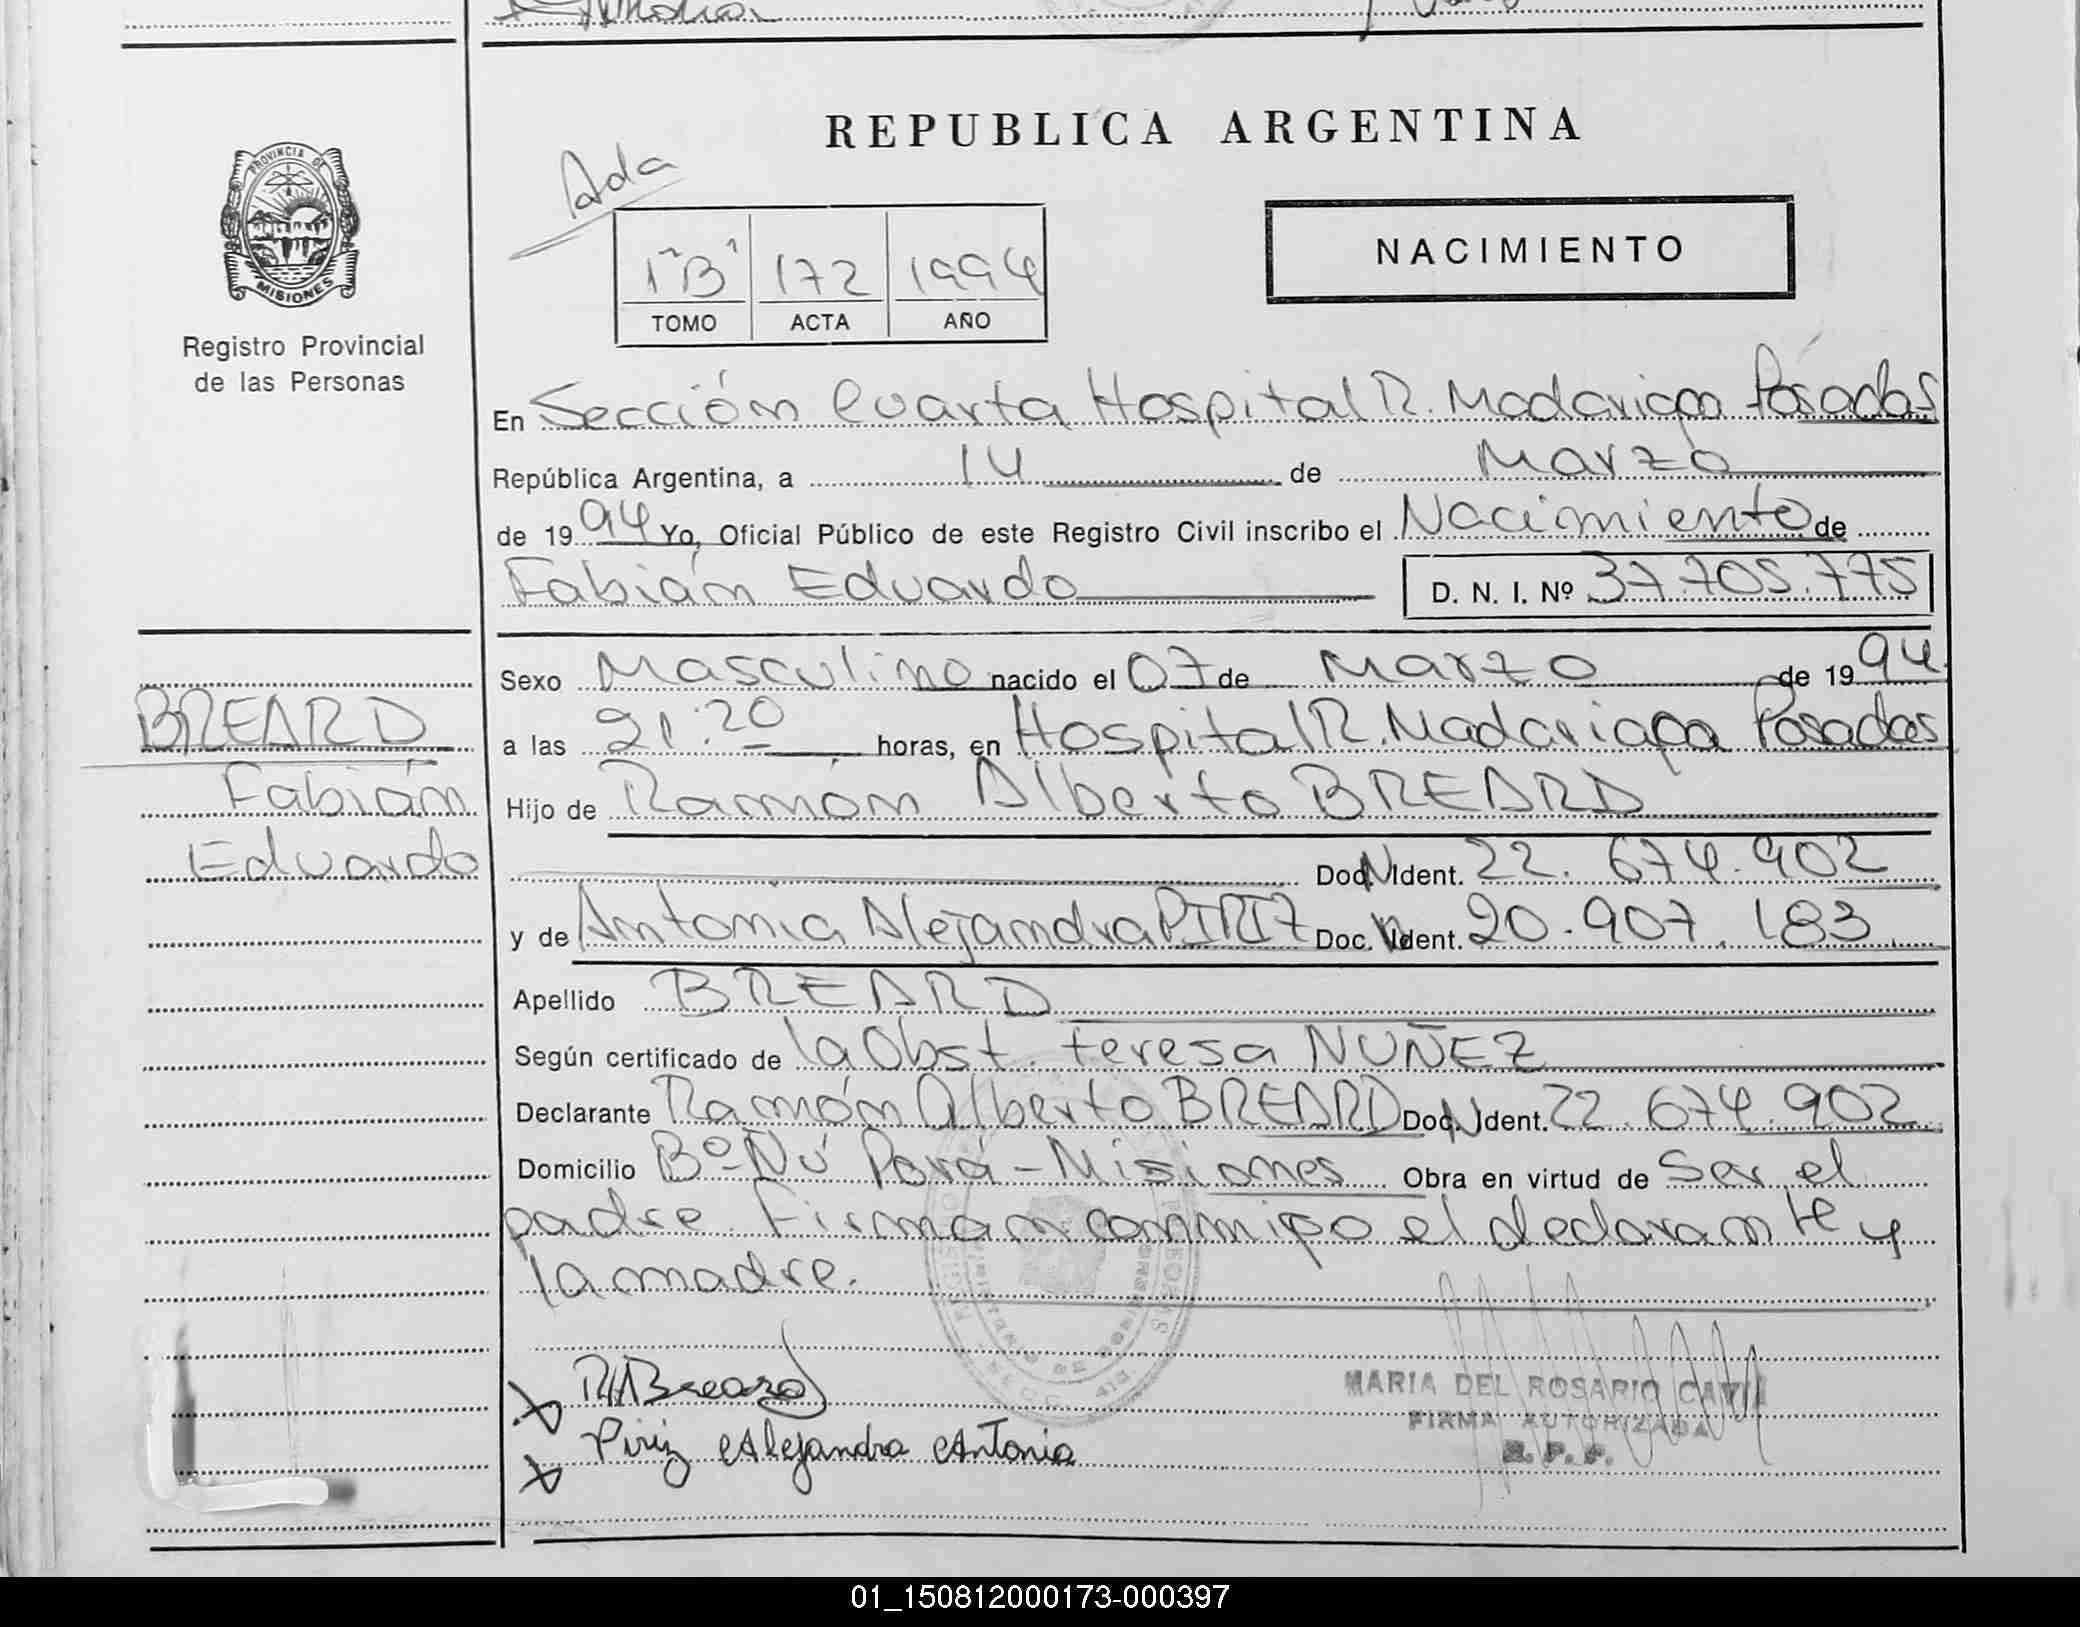 REPUBLICA ARGENTINA
Ada
1"B" 172 1994
TOMO ACTA AÑO
NACIMIENTO
PROVINCIA DE
MISIONES
Registro Provincial
de las Personas
En Sección Cuarta Hospital R. Madariaga Posadas
República Argentina, a 14 de Marzo
de 1994 Yo, Oficial Público de este Registro Civil inscribo el Nacimiento de
Fabián Eduardo D. N. I. Nº 37.705.775
Sexo Masculino nacido el 07 de Marzo de 1994
a las 21:20 horas, en Hospital R. Madariaga Posadas
Hijo de Ramón Alberto BREARD
Doc. N Ident. 22.674.902
y de Antonia Alejandra PIRIZ Doc. N Ident. 20.907.183
Apellido BREARD
Según certificado de la Obst. teresa NUÑEZ
Declarante Ramón Alberto BREARD Doc. N Ident. 22.674.902
Domicilio Bº Ñú Porá - Misiones Obra en virtud de Ser el
padre. Firman conmigo el declarante y
la madre.
BREARD
Fabián
Eduardo
RABreard
Piriz Alejandra Antonia
MARIA DEL ROSARIO
FIRMA AUTORIZADA
R. P. P.
01_150812000173-000397